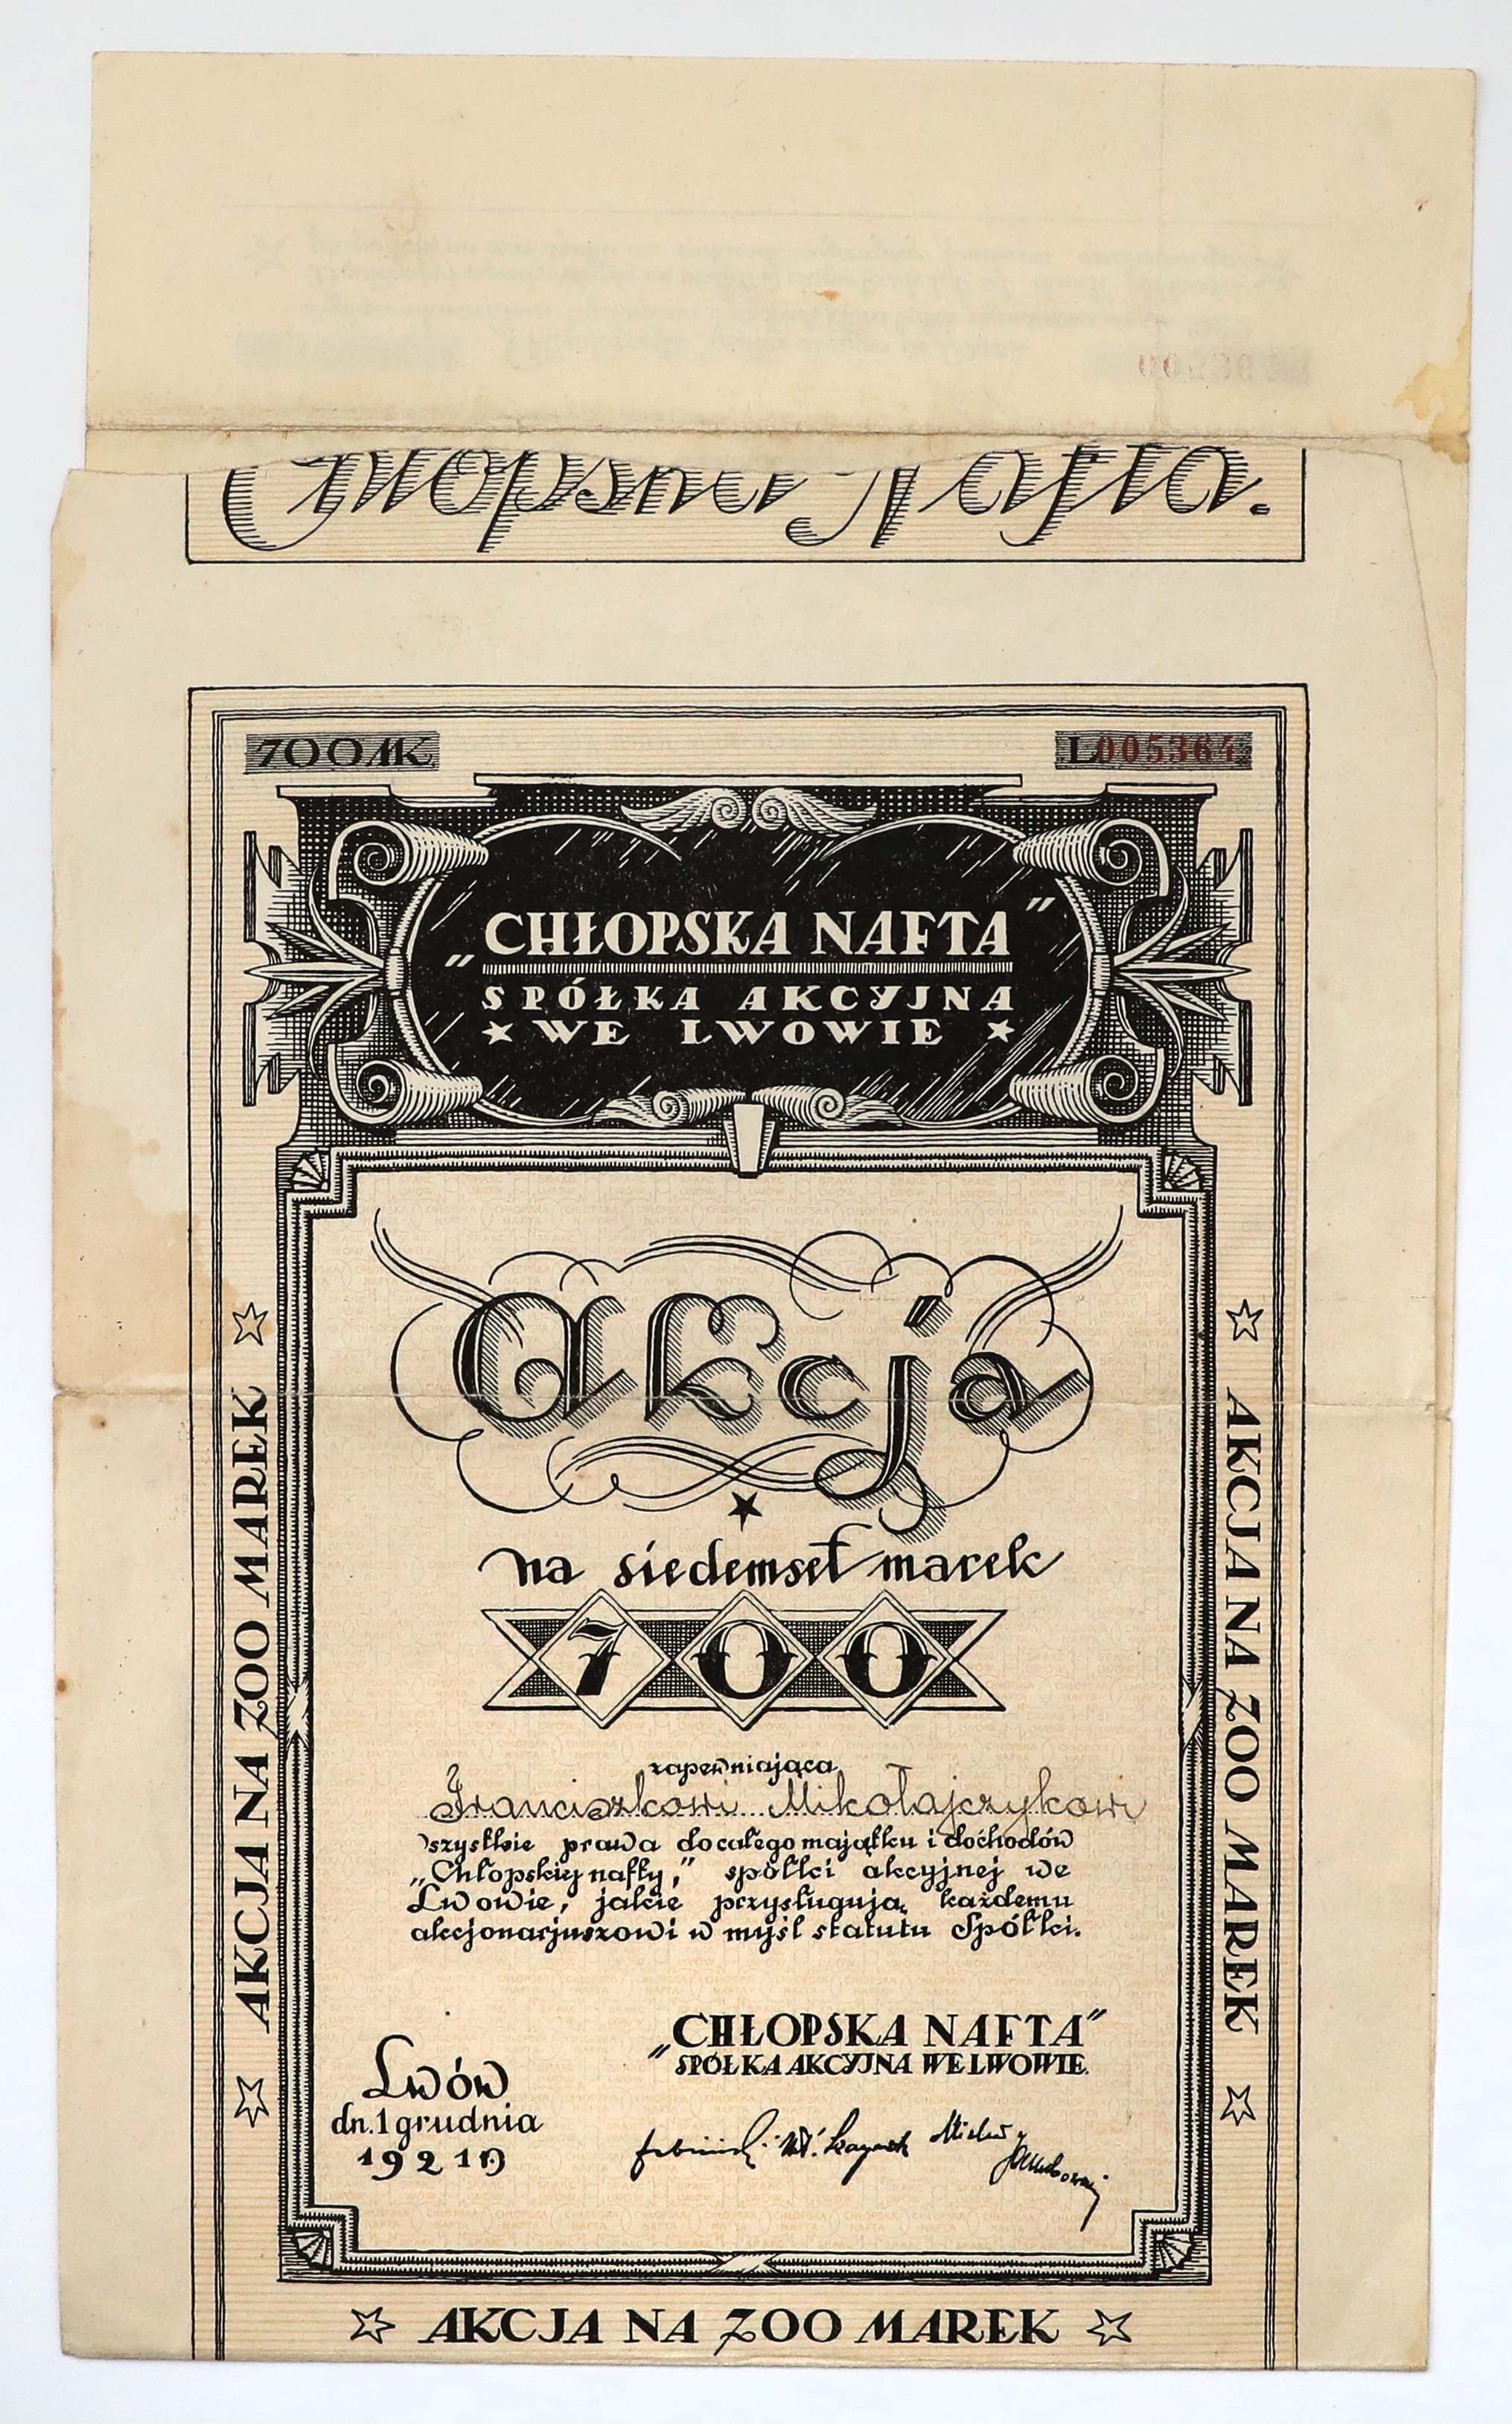 Chłopska Nafta.
700 MK
L005364
„CHŁOPSKA NAFTA”
SPÓŁKA AKCYJNA
★ WE LWOWIE ★
Akcja
na siedemset marek
700
zapewniająca
Franciszkowi Mikołajczykowi
wszystkie prawa do całego majątku i dochodów
„Chłopskiej nafty,” spółki akcyjnej we
Lwowie, jakie przysługują każdemu
akcjonarjuszowi w myśl statutu Spółki.
„CHŁOPSKA NAFTA”
SPÓŁKA AKCYJNA WE LWOWIE.
Lwów
dn. 1 grudnia
1921
☆ AKCJA NA 700 MAREK ☆
☆ AKCJA NA 700 MAREK ☆
☆ AKCJA NA 700 MAREK ☆